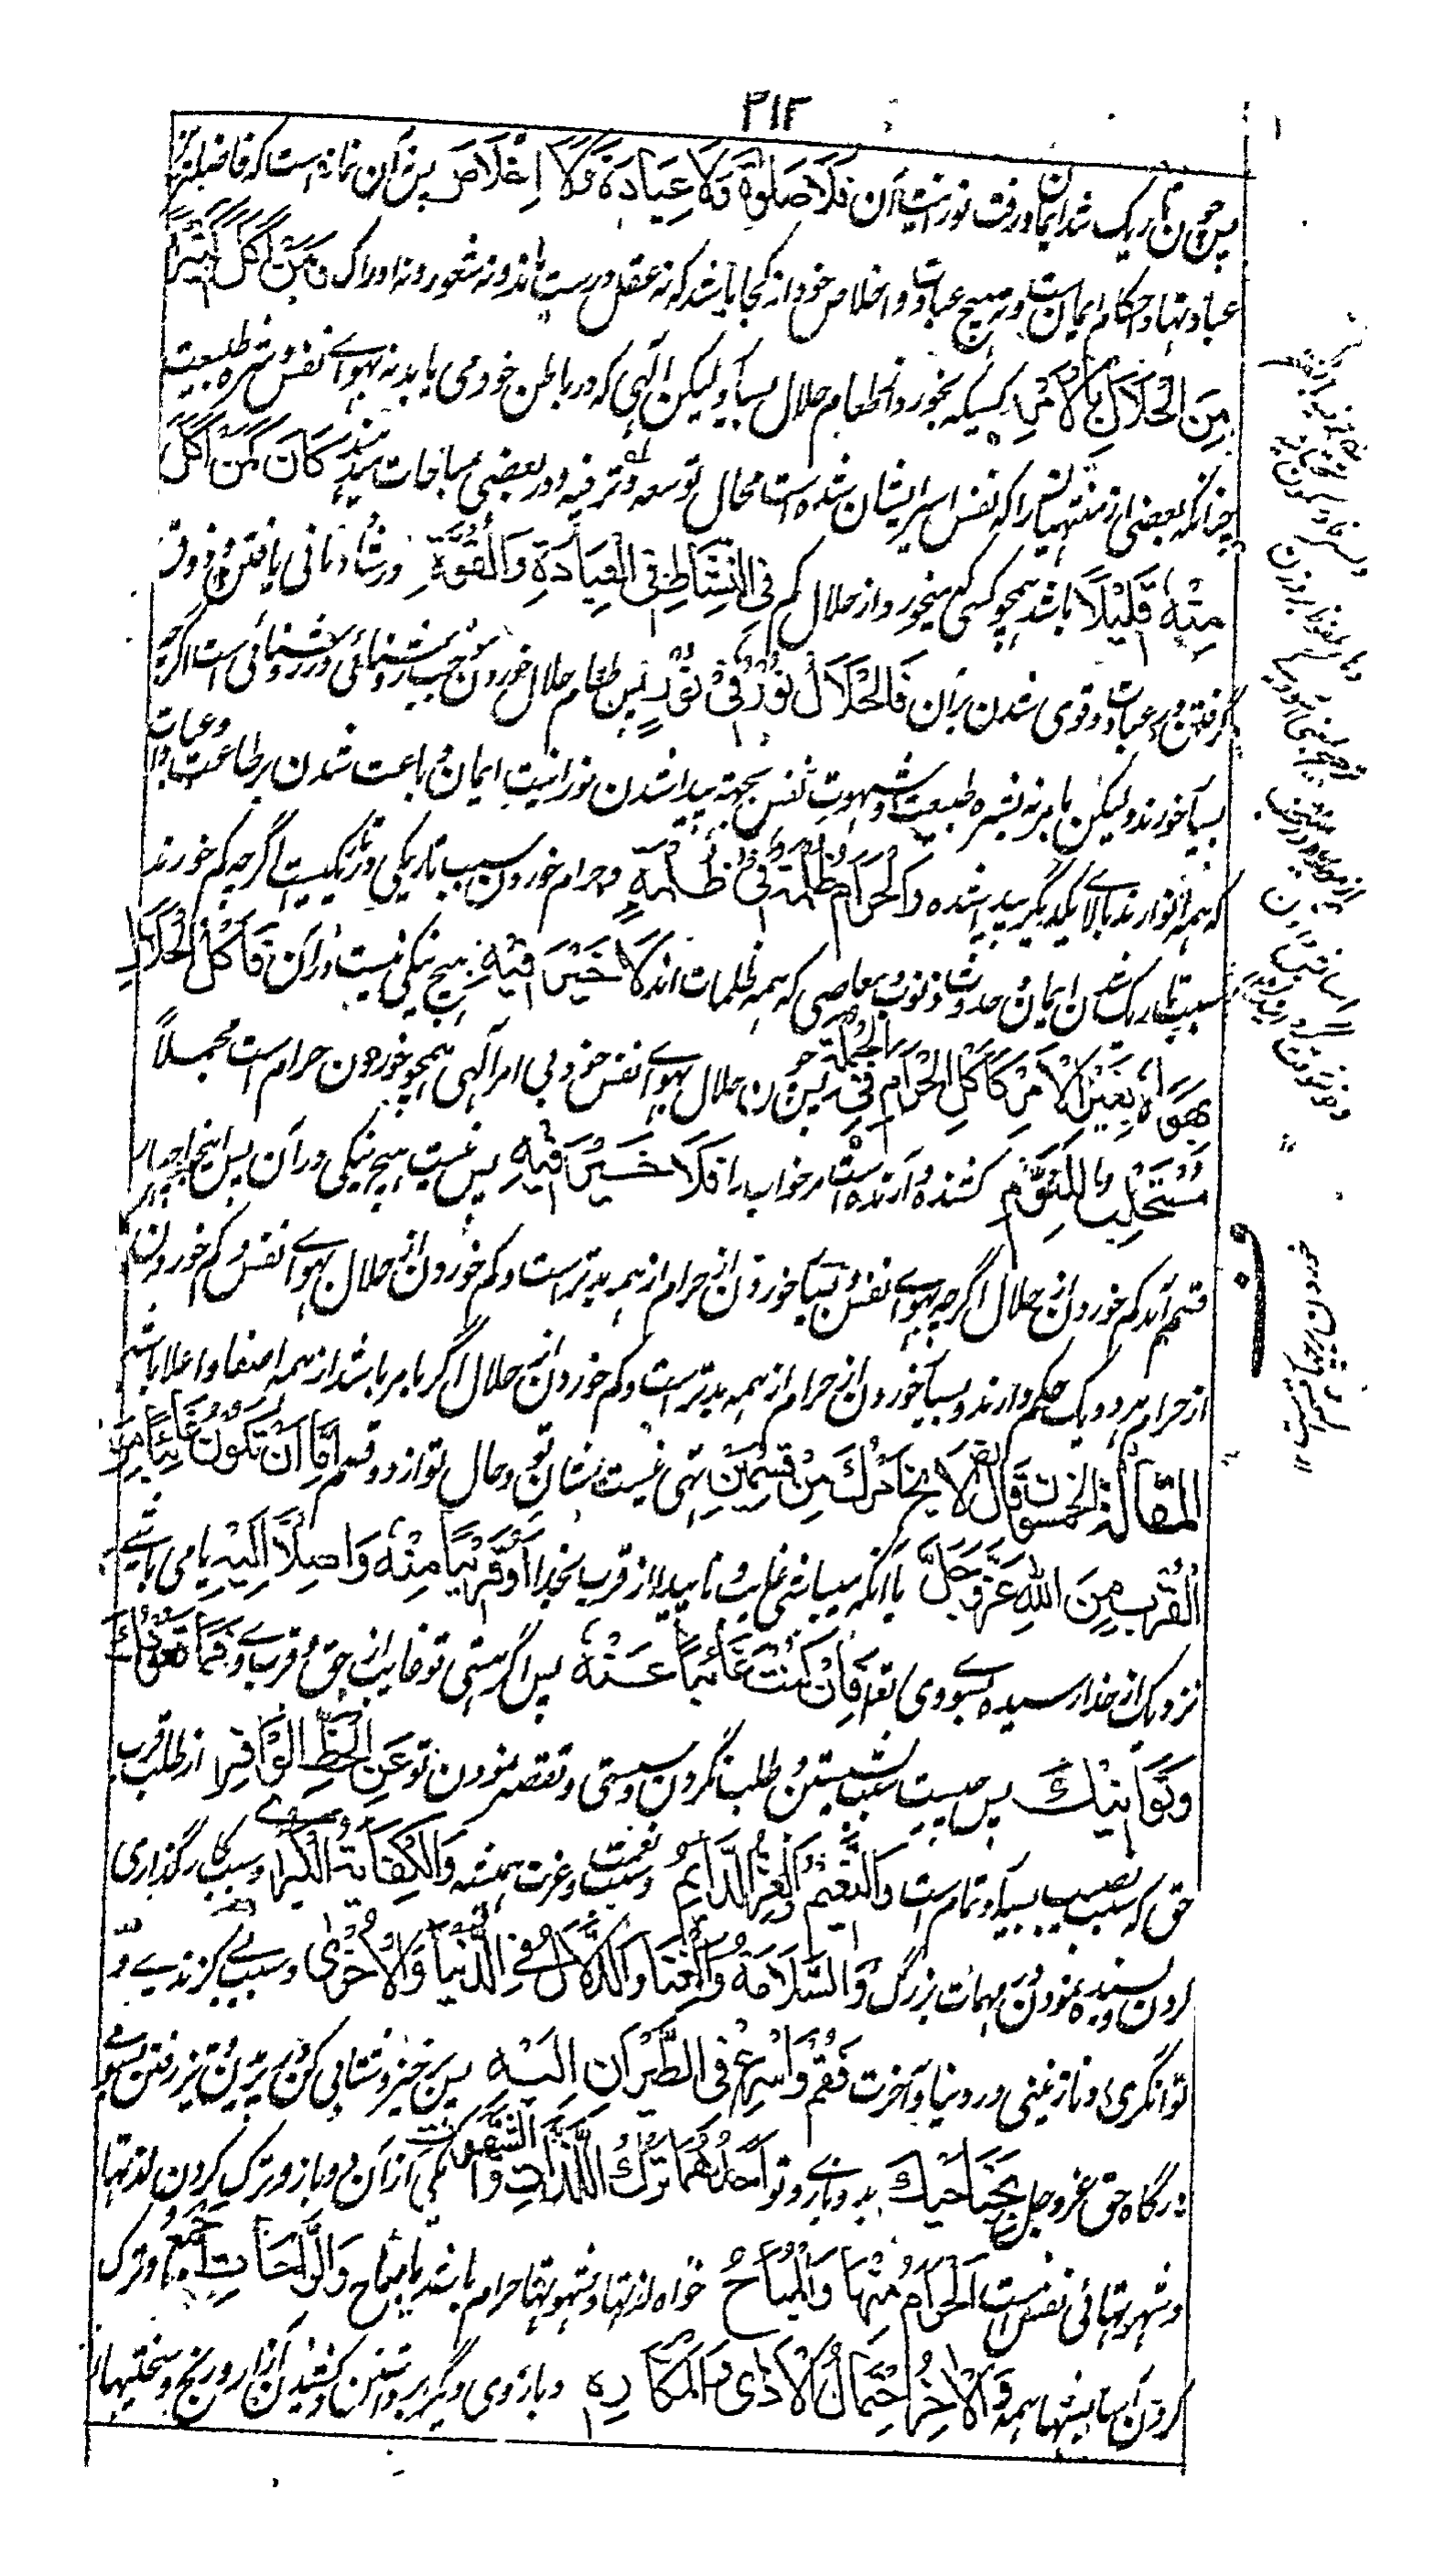 ۳۱۲
پس چون تاریک شد ایمان و رفت نورانیت آن فَلَا صَلٰوةَ وَلَا عِبَادَةَ وَلَا اِخْلَاصَ پس نه آن نماز است که فاضلترین
عبادتها و احکام ایمان است و نه هیچ عبادت و اخلاص خود از کجا باشد که نه عقل درست ماند و نه شعور و نه ادراک فَمَنْ اَكَلَ كَثِيْرًا
مِنَ الْحَلَالِ بِالْاَمْرِ کسیکه بخورد از طعام حلال بسیار ولیکن الهی که در باطن خود می یابد نه بهوای نفس و شره طبیعت
چنانکه بعضی از منتهیان را که نفس اسیر ایشان شده است محال توسعه و ترفیه و در بعضی مباحات میدهند كَانَ كَمَنْ اَكَلَ
مِنْهُ قَلِيْلًا باشد همچو کسی که میخورد از حلال کم فِي النَّشَاطِ فِي الْعِبَادَةِ وَالْقُوَّةِ در شادمانی یافتن و ذوق
گرفتن در عبادت و قوی شدن بر آن فَالْحَلَالُ نُوْرٌ فِيْ نُوْرٍ پس طعام حلال خوردن موجب روشنائی در روشنائی است اگرچه
بسیار خورند ولیکن بامر نه بشره طبیعت و شهوت نفس بجهة پیدا شدن نورانیت ایمان و باعث شدن بر طاعت و عبادت
که همه انوارند بالای یکدیگر پیدا شده وَالْحَرَامُ ظُلْمَةٌ فِيْ ظُلْمَةٍ و حرام خوردن سبب تاریکی در تاریکیست اگرچه کم خورند
بسبب تاریک شدن ایمان و حدوث ذنوب و معاصی که همه ظلمات اند لَا خَيْرَ فِيْهِ هیچ نیکی نیست در آن فَاَكْلُ الْحَلَالِ
بِهَوَاهُ بِغَيْرِ الْاَمْرِ كَاَكْلِ الْحَرَامِ فِي الْجُمْلَةِ پس خوردن حلال بهوای نفس خود بی امر الهی همچو خوردن حرام است مجملاً
مُسْتَجْلِبٌ لِلنَّوْمِ کشنده و آرنده است مر خواب را فَلَا خَيْرَ فِيْهِ پس نیست هیچ نیکی در آن پس اینجا چهار
قسم آمد کم خوردن از حلال اگرچه بهوای نفس و بسیار خوردن از حرام از همه بدتر است و کم خوردن از حلال بهوای نفس و کم خوردن
از حرام هر دو یک حکم دارند و بسیار خوردن از حرام از همه بدتر است و کم خوردن از حلال اگر بامر باشد از همه اصفا و اعلا باشد
المقالة الخمسون قَالَ رض لَا يَخْلُو اَمْرُكَ مِنْ قِسْمَيْنِ تهی نیست شان تو و حال تو از دو قسم اِمَّا اَنْ تَكُوْنَ غَائِبًا مِنَ
الْقُرْبِ مِنَ اللّٰهِ عَزَّ وَجَلَّ یا آنکه میباشی غایب و ناپیدا از قرب بخدا اَوْ قَرِيْبًا مِنْهُ وَاصِلًا اِلَيْهِ یا می باشی
نزدیک از خدا رسیده بسوی وی تع فَاِنْ كُنْتَ غَائِبًا عَنْهُ پس اگر هستی تو غایب از حق و قرب وی فَمَا قُعُوْدُكَ
وَتَوَانِيْكَ پس چیست سبب نشستن و طلب نکردن و سستی و تقصیر نمودن تو عَنِ الْحَظِّ الْوَافِرِ از طلب قرب
حق که سبب نصیب بسیار و تمام است وَالنَّعِيْمِ وَالْعِزِّ الدَّائِمِ و سبب نعمت و عزت همیشه وَالْكِفَايَةِ الْكُبْرٰى و سبب کارگذاری
کردن و بسنده نمودن مهمات بزرگ وَالسَّلَامَةِ وَالْغِنَا وَالدَّلَالِ فِي الدُّنْيَا وَالْاُخْرٰى و سبب بی گزندی و
توانگری و نازنینی در دنیا و آخرت فَقُمْ وَاَسْرِعْ فِي الطَّيَرَانِ اِلَيْهِ پس برخیز و شتابی کن در پریدن و تیز رفتن بسوی
درگاه حق عز و جل بِجَنَاحَيْكَ بدو بازوی تو اَحَدُهُمَا تَرْكُ اللَّذَّاتِ وَالشَّهَوَاتِ یکی از آن دو بازو ترک کردن لذتها
و شهوتهائی نفس است الْحَرَامِ مِنْهَا وَالْمُبَاحِ خواه لذتها و شهوتها حرام باشد یا مباح وَالرَّاحَاتِ اَجْمَعَ و ترک
کردن آسایشها همه وَالْاٰخَرُ احْتِمَالُ الْاَذٰى وَالْمَكَارِهِ و بازوی دیگر برداشتن و کشیدن آزار و رنج و سختیها